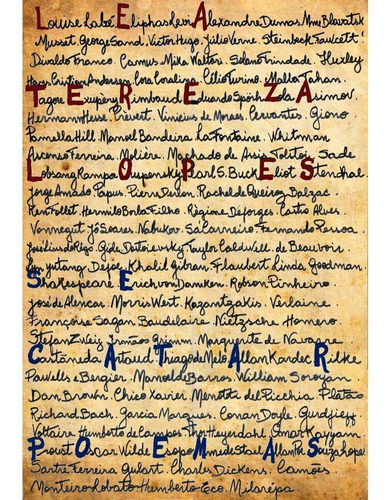 E A
Louise Labé Eliphas Levi Alexandre Dumas Mme Blavatsk
Musset. George Sand. Victor Hugo. Júlio Verne. Steinbeck Fawcett
Divaldo Franco. Camus. Mika Waltari. Solano Trindade. Huxley
Hans Cristian Andersen. Cora Coralina. Célio Turino. Malba Tahan.
T E R E Z A
Tagore Exupéry Rimbaud Eduardo Spohr Zola Asimov
Hermann Hesse. Prévert. Vinicius de Moraes. Cervantes. Giono
Pamella Hill. Manoel Bandeira. La Fontaine. Whitman
Ascenso Ferreira. Molière. Machado de Assis Tolstoi. Sade
L O P E S
Lobsang Rampa Ouspensky Pearl S. Buck Eliot Stenshal
Jorge Amado Papus. Pierre Derlon. Rachel de Queiroz Balzac.
Ken Follet. Hermilo Borba Filho. Régime Deforges. Castro Alves.
Vonnegut Jô Soares. Nabukov. Sá Carneiro Fernando Pessoa.
José Lins do Rego. Gide Dostoievsky. Taylor Caldwell. de Beauvoir.
Lin Yutang Defoe Khalil Gibran. Flaubert Linda Goodman.
S E
Shakespeare Erich von Daniken. Robson Pinheiro
José de Alencar. Morris West. Kazantzakis. Verlaine
Françoise Sagan Baudelaire Nietzsche Homero
Stefan Zweig Irmãos Grimm. Marguerite de Navarre
C A T A R
Castañeda Artaud Thiago de Melo Allan Kardec Rilke
Pawells e Bergier. Manoel de Barros William Saroyan
Dan Brown. Chico Xavier Menotti del Picchia Platão
Richard Bach. Garcia Marques. Conan Doyle. Gurdjieff
Voltaire Humberto de Campos. Thor Heyerdahl Omar Kayyam
P O E M A S
Proust Oscar Wilde Esopo Mme de Stael Allan Pol Souzalopes
Sartre Ferreira Gulart Charles Dickens. Camões
Monteiro Lobato Humberto Eco. Milarépa